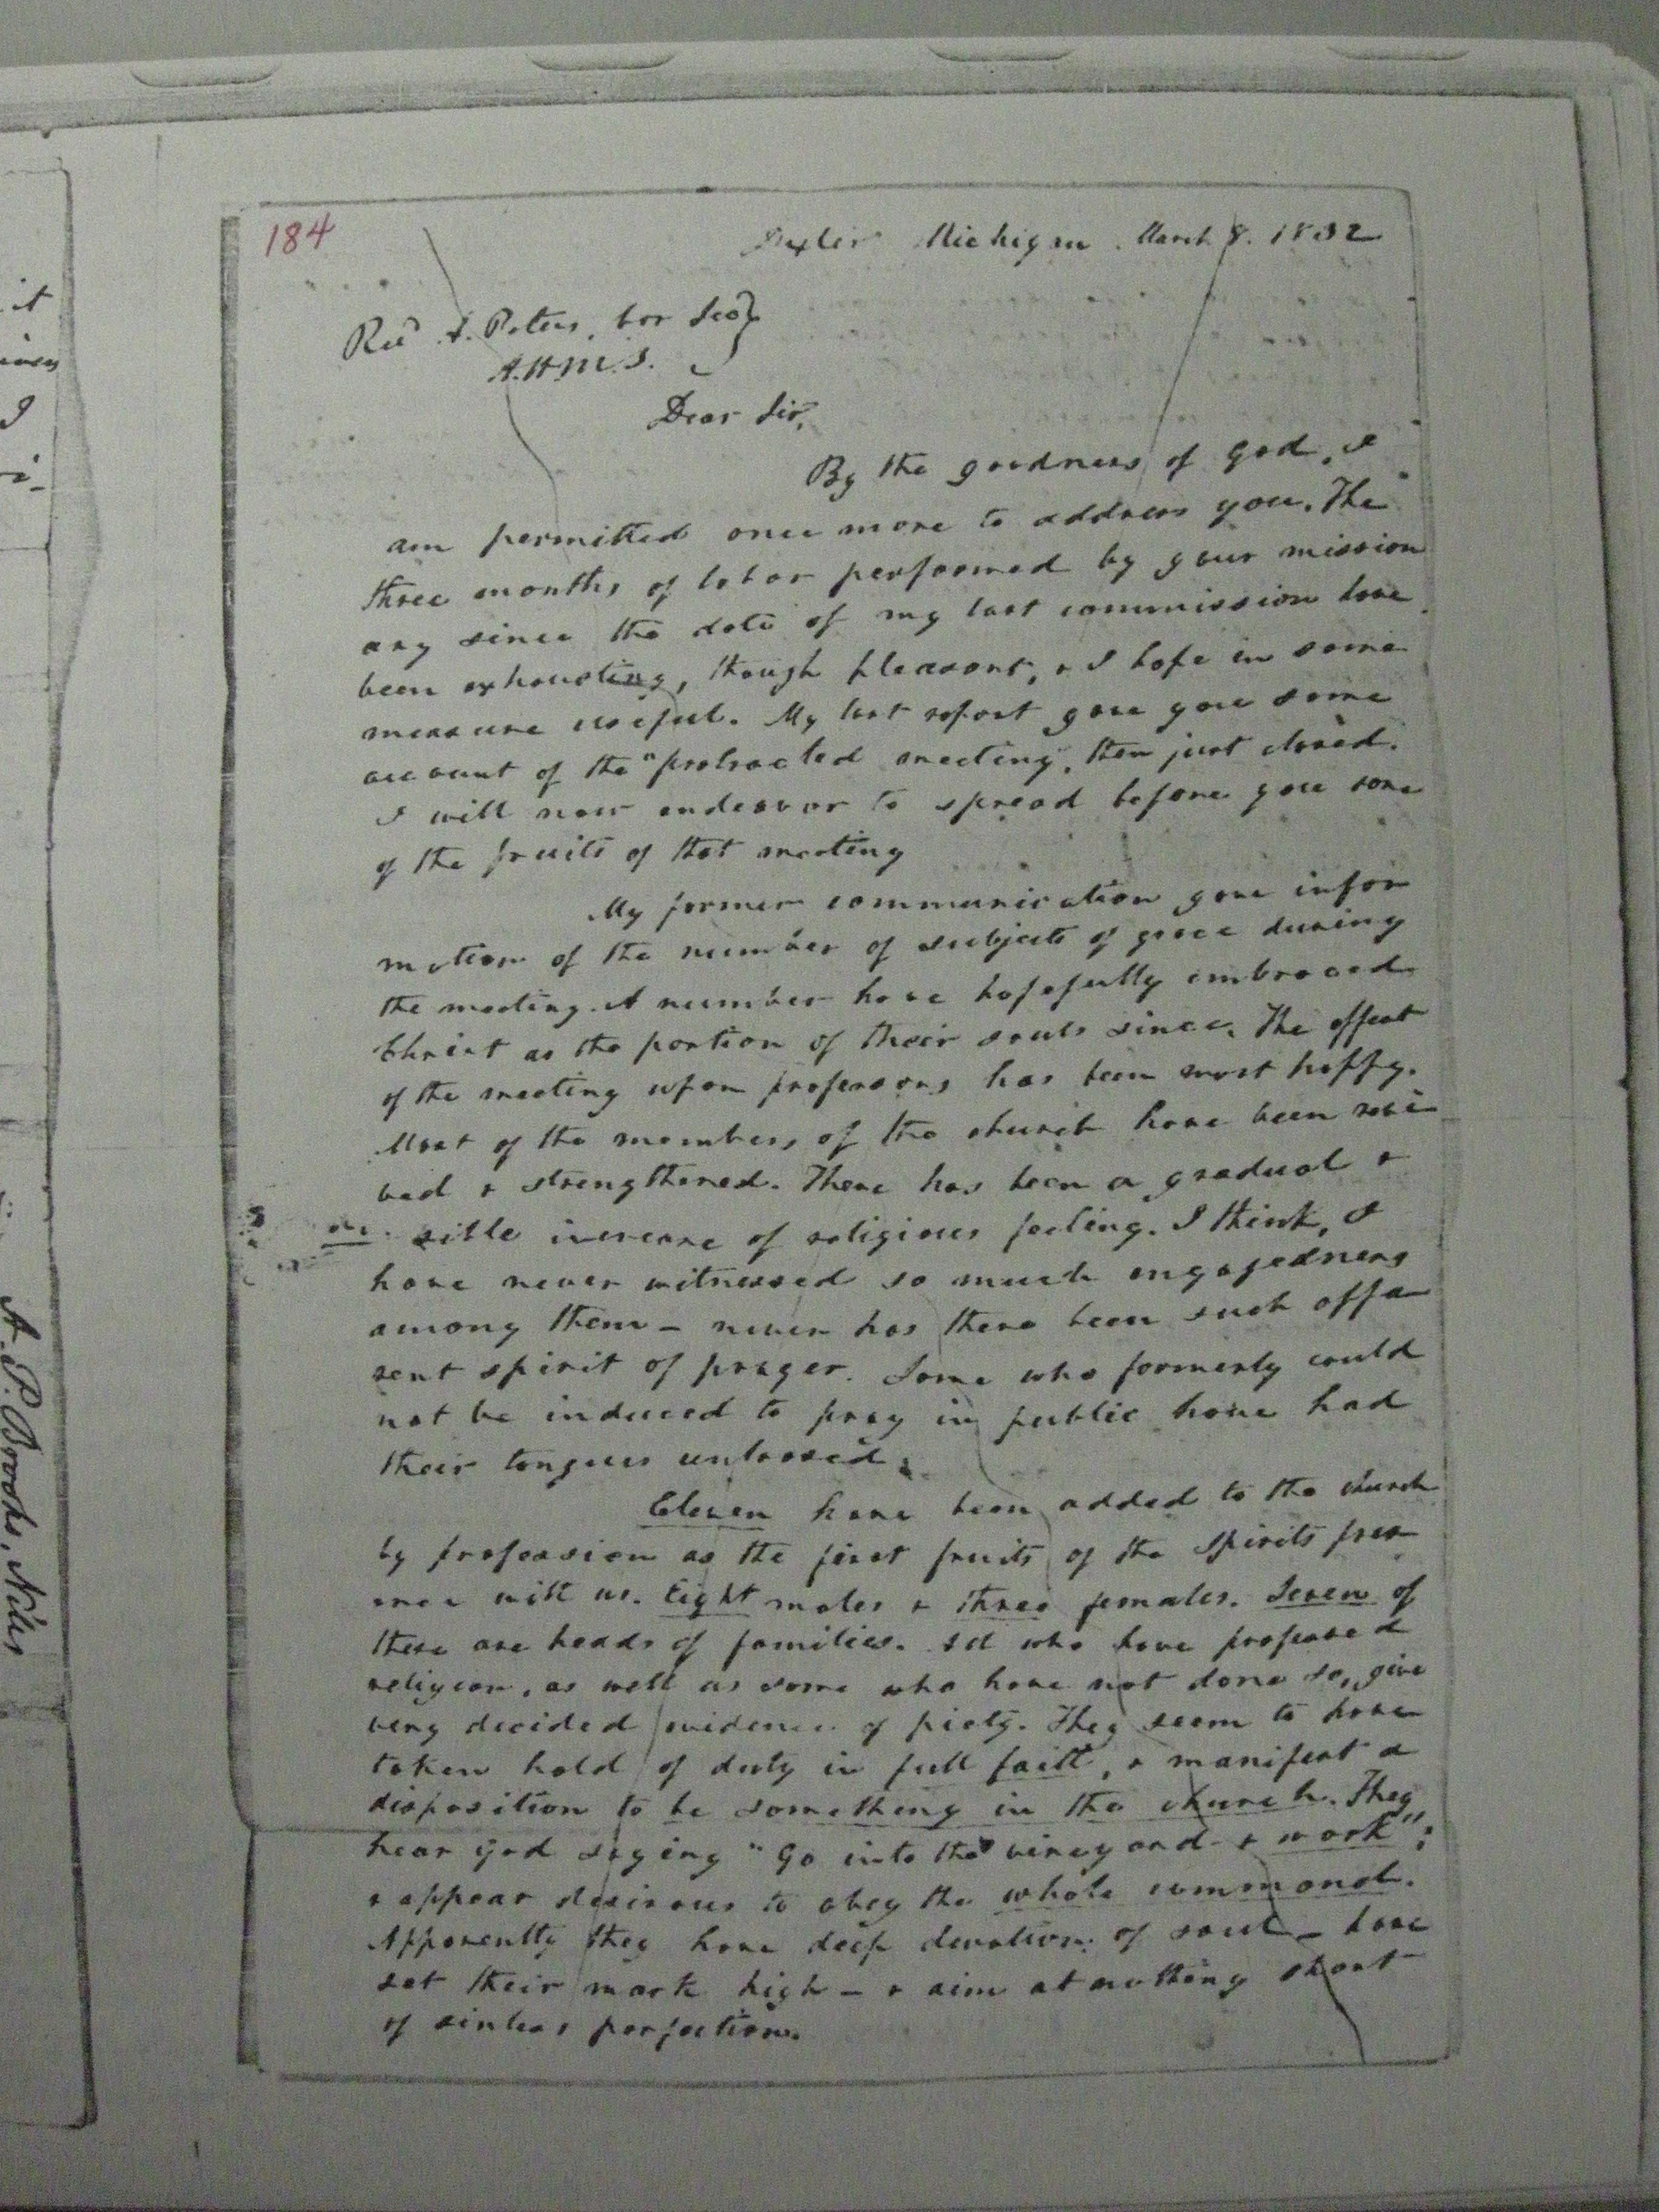 184
Dexter Michigan. March 8. 1832
Revd A. Peters, Cor Secy
A.H.M.S.
Dear Sir,
By the goodness of God, I
am permitted once more to address you. The
three months of labor performed by your mission
ary since the date of my last commission have
been exhausting, though pleasant, & I hope in some
measure useful. My last report gave you some
account of the "protracted meeting, then just closed.
I will now endeavor to spread before you some
of the fruits of that meeting
My former communication gave infor
mation of the number of subjects of grace during
the meeting. A number have hopefully embraced
Christ as the portion of their souls since. The effect
of the meeting upon professors has been most happy.
Most of the members of the church have been revi
ved & strengthened. There has been a gradual &
sible increase of religious feeling. I think, I
have never witnessed so much engagedness
among them – never has there been such appa
rent spirit of prayer. Some who formerly could
not be induced to pray in public have had
their tongues unloosed.
Eleven have been added to the church
by profession as the first fruits of the Spirits pres
ence with us. Eight males & three females. Seven of
these are heads of families. All who have professed
religion, as well as some who have not done so, give
very decided evidence of piety. They seem to have
taken hold of duty in full faith, & manifest a
disposition to be something in the church. They
hear God saying "Go into the vineyard & work";
& appear desirous to obey the whole command.
Apparently they have deep devotion of soul – have
set their mark high – & aim at nothing short
of sinless perfection.
it
I
A. P. Brooks, Niles